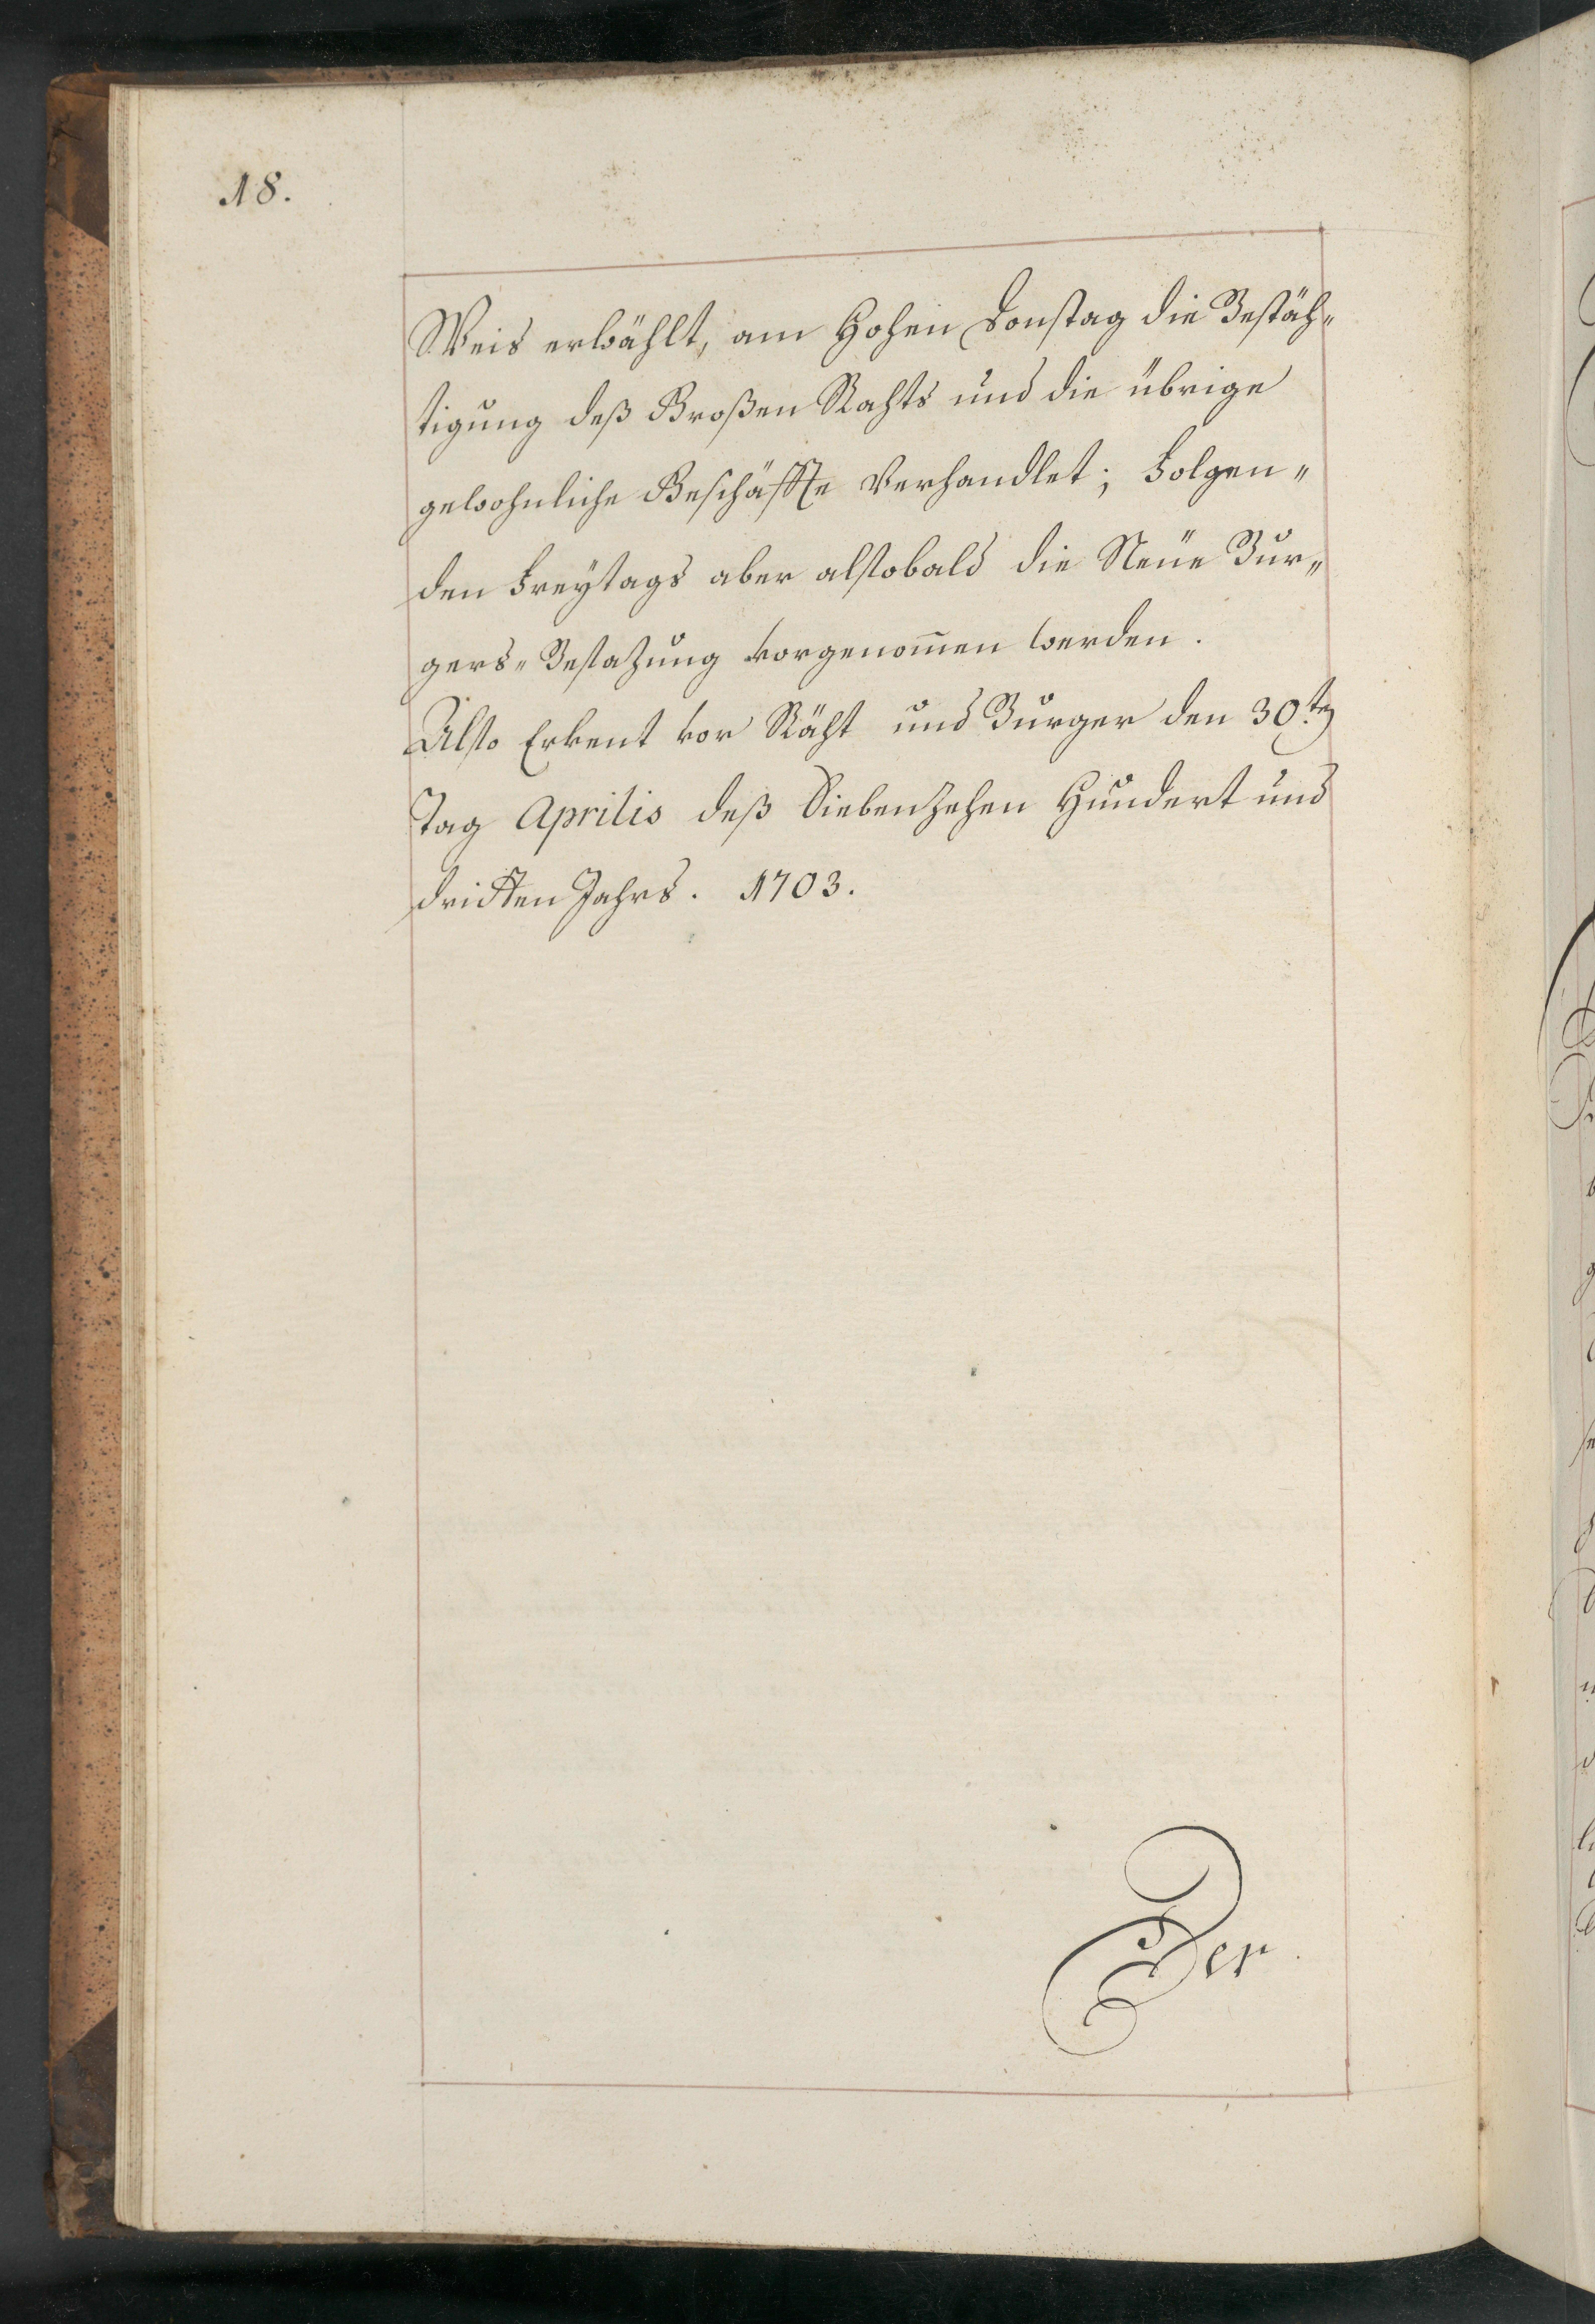 18.
Weis erwählt, am Hohen Donstag die Bestäh„
tigung deß Großen Rahts und die übrige
gewohnliche Geschäffte Verhandlet; Folgen„
den Freytags aber alsobald die Neüe Bur„
gers„Besazung vorgenom̅en werden.
Also Erkent vor Räht und Burger den 30.ten
Tag Aprilis deß Siebenzehen Hundert und
dritten Jahrs. 1703.
Der